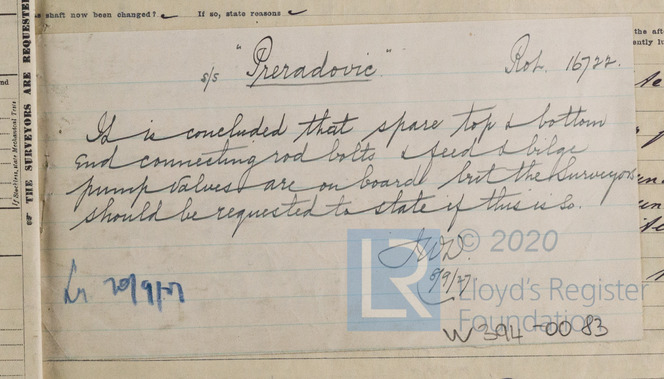 shaft now been changed?
If so, state reasons
THE SURVEYORS ARE REQUESTED
s/s "Preradovic"
Rot. 16722.
It is concluded that spare top & bottom
end connecting rod bolts & feed & bilge
pump valves are on board but the Surveyors
should be requested to state if this is so.
8/9/27
Lr 20/9/27
LR
© 2020
Lloyd's Register
Foundation
W394-0083